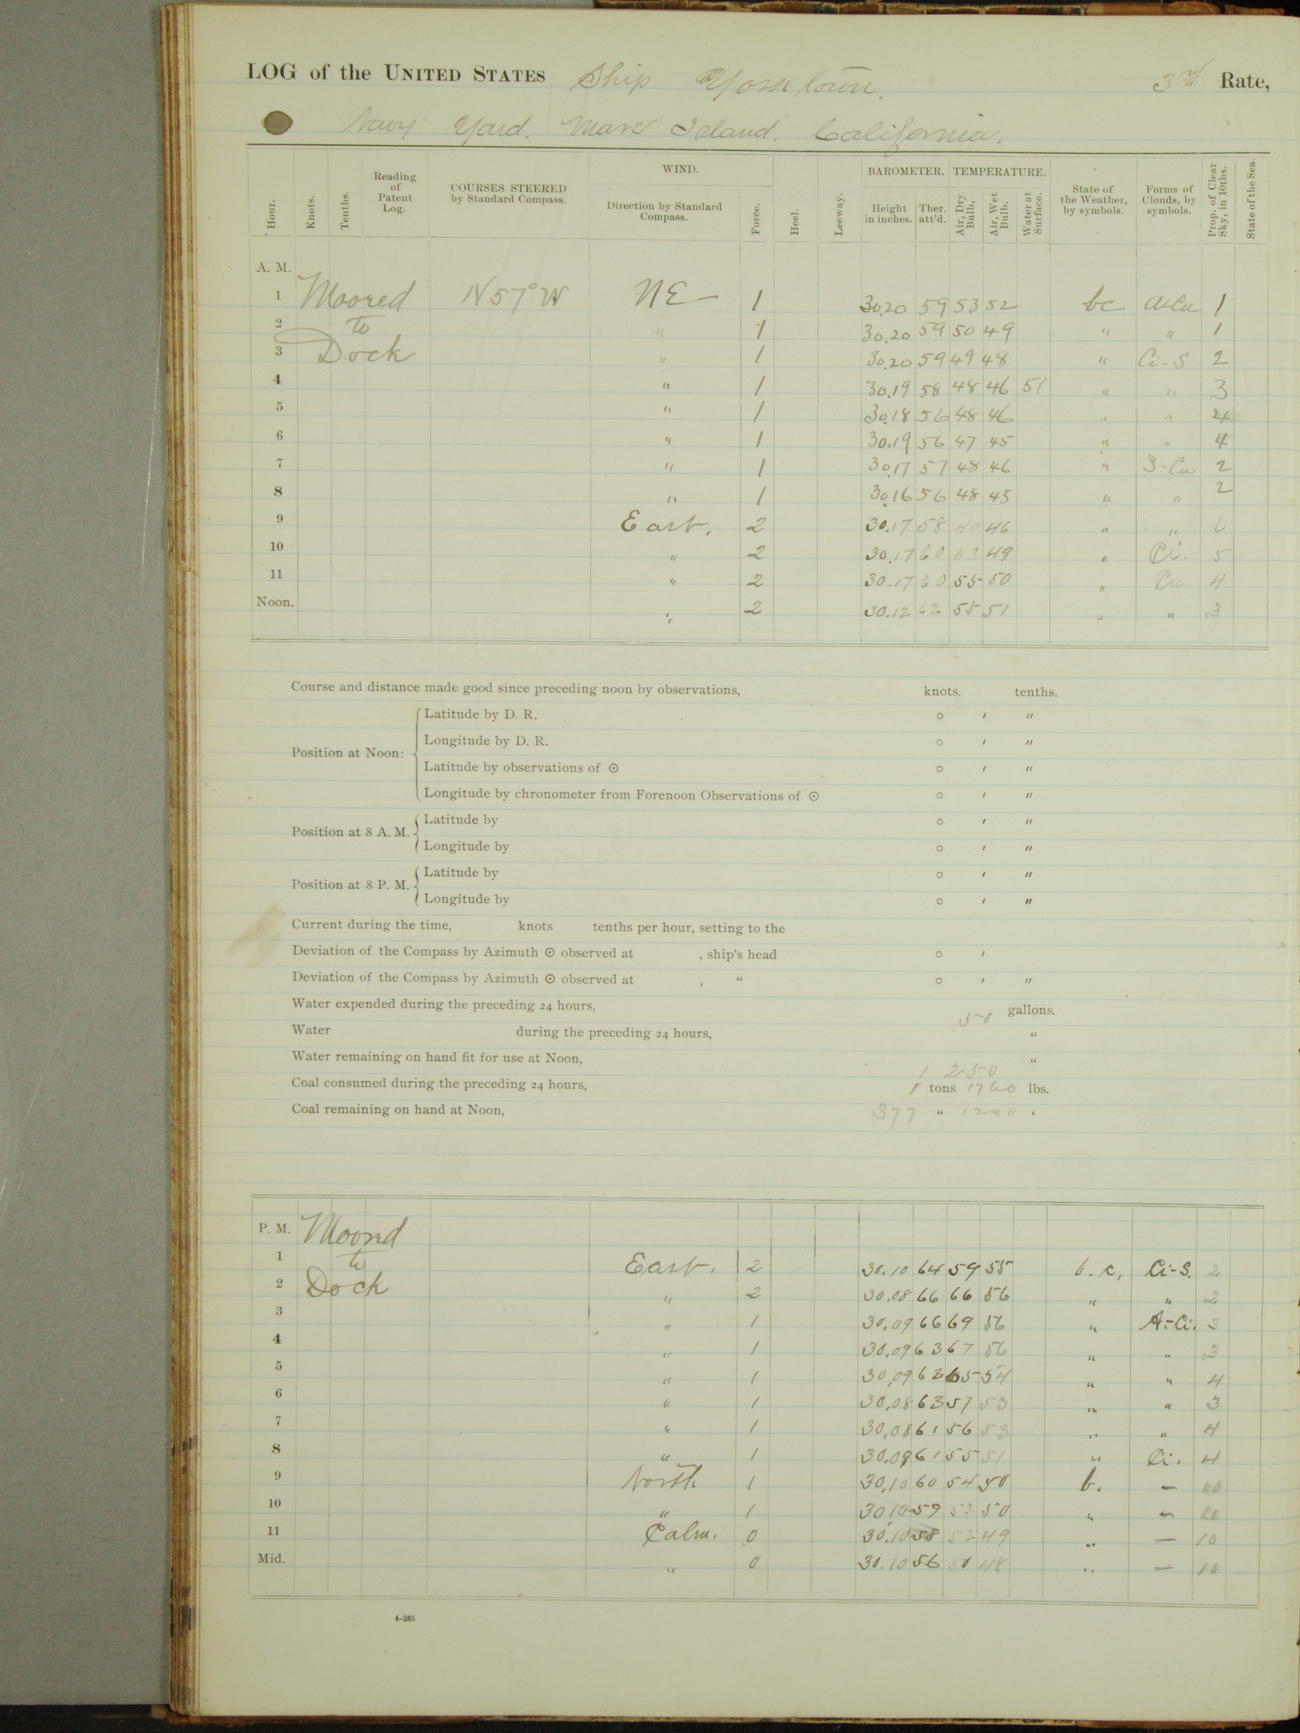 LOG of the UNITED STATES Ship Yorktown. 3rd Rate,
Navy Yard, Mare Island, California.
Hour. Knots. Tenths. Reading of Patent Log. COURSES STEERED by Standard Compass. WIND. Direction by Standard Compass. Force. Heel. Leeway. BAROMETER. Height in inches. Ther. att'd. TEMPERATURE. Air, Dry Bulb. Air, Wet Bulb. Water at Surface. State of the Weather, by symbols. Forms of Clouds, by symbols. Prop. of Clear Sky, in 10ths. State of the Sea.
A. M.
1 Moored N57°W NE 1 30.20 59 53 52 bc 1
2 to " 1 30.20 59 50 49 " " 1
3 Dock " 1 30.20 59 49 48 " Ci-S 2
4 " 1 30.19 58 48 46 51 " " 3
5 " 1 30.18 56 48 46 " " 4
6 " 1 30.19 56 47 45 " " 4
7 " 1 30.17 57 48 46 " S-Cu 2
8 " 1 30.16 56 48 45 " " 2
9 East. 2 30.17 58 49 46 " " 6
10 " 2 30.17 60 53 49 " Ci. 5
11 " 2 30.17 60 55 50 " Cu 4
Noon. " 2 30.12 62 55 51 " " 3
Course and distance made good since preceding noon by observations, knots. tenths.
Position at Noon: Latitude by D. R. ° ′ ″
Longitude by D. R. ° ′ ″
Latitude by observations of ☉ ° ′ ″
Longitude by chronometer from Forenoon Observations of ☉ ° ′ ″
Position at 8 A. M. Latitude by ° ′ ″
Longitude by ° ′ ″
Position at 8 P. M. Latitude by ° ′ ″
Longitude by ° ′ ″
Current during the time, knots tenths per hour, setting to the
Deviation of the Compass by Azimuth ☉ observed at , ship's head ° ′
Deviation of the Compass by Azimuth ☉ observed at , " ° ′ ″
Water expended during the preceding 24 hours, 50 gallons.
Water during the preceding 24 hours, "
Water remaining on hand fit for use at Noon, 1250 "
Coal consumed during the preceding 24 hours, 1 tons 1760 lbs.
Coal remaining on hand at Noon, 377 " 1200 "
P. M. Moored
1 to East. 2 30.10 64 59 55 b.c, Ci-S. 2
2 Dock " 2 30.08 66 66 56 " " 2
3 " 1 30.09 66 69 56 " A-Ci. 3
4 " 1 30.09 63 67 56 " " 3
5 " 1 30.09 63 65 54 " " 4
6 " 1 30.08 63 57 53 " " 3
7 " 1 30.08 61 56 53 " " 4
8 " 1 30.09 61 55 51 " Ci. 4
9 North 1 30.10 60 54 50 b. — 10
10 " 1 30.10 59 53 50 " — 10
11 Calm. 0 30.10 58 52 49 " — 10
Mid. " 0 30.10 56 50 48 " — 10
4-265